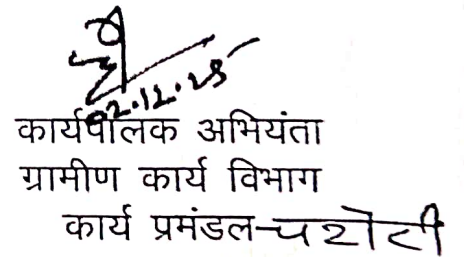 02.12.25
कार्यपालक अभियंता
ग्रामीण कार्य विभाग
कार्य प्रमंडल-चरोटी